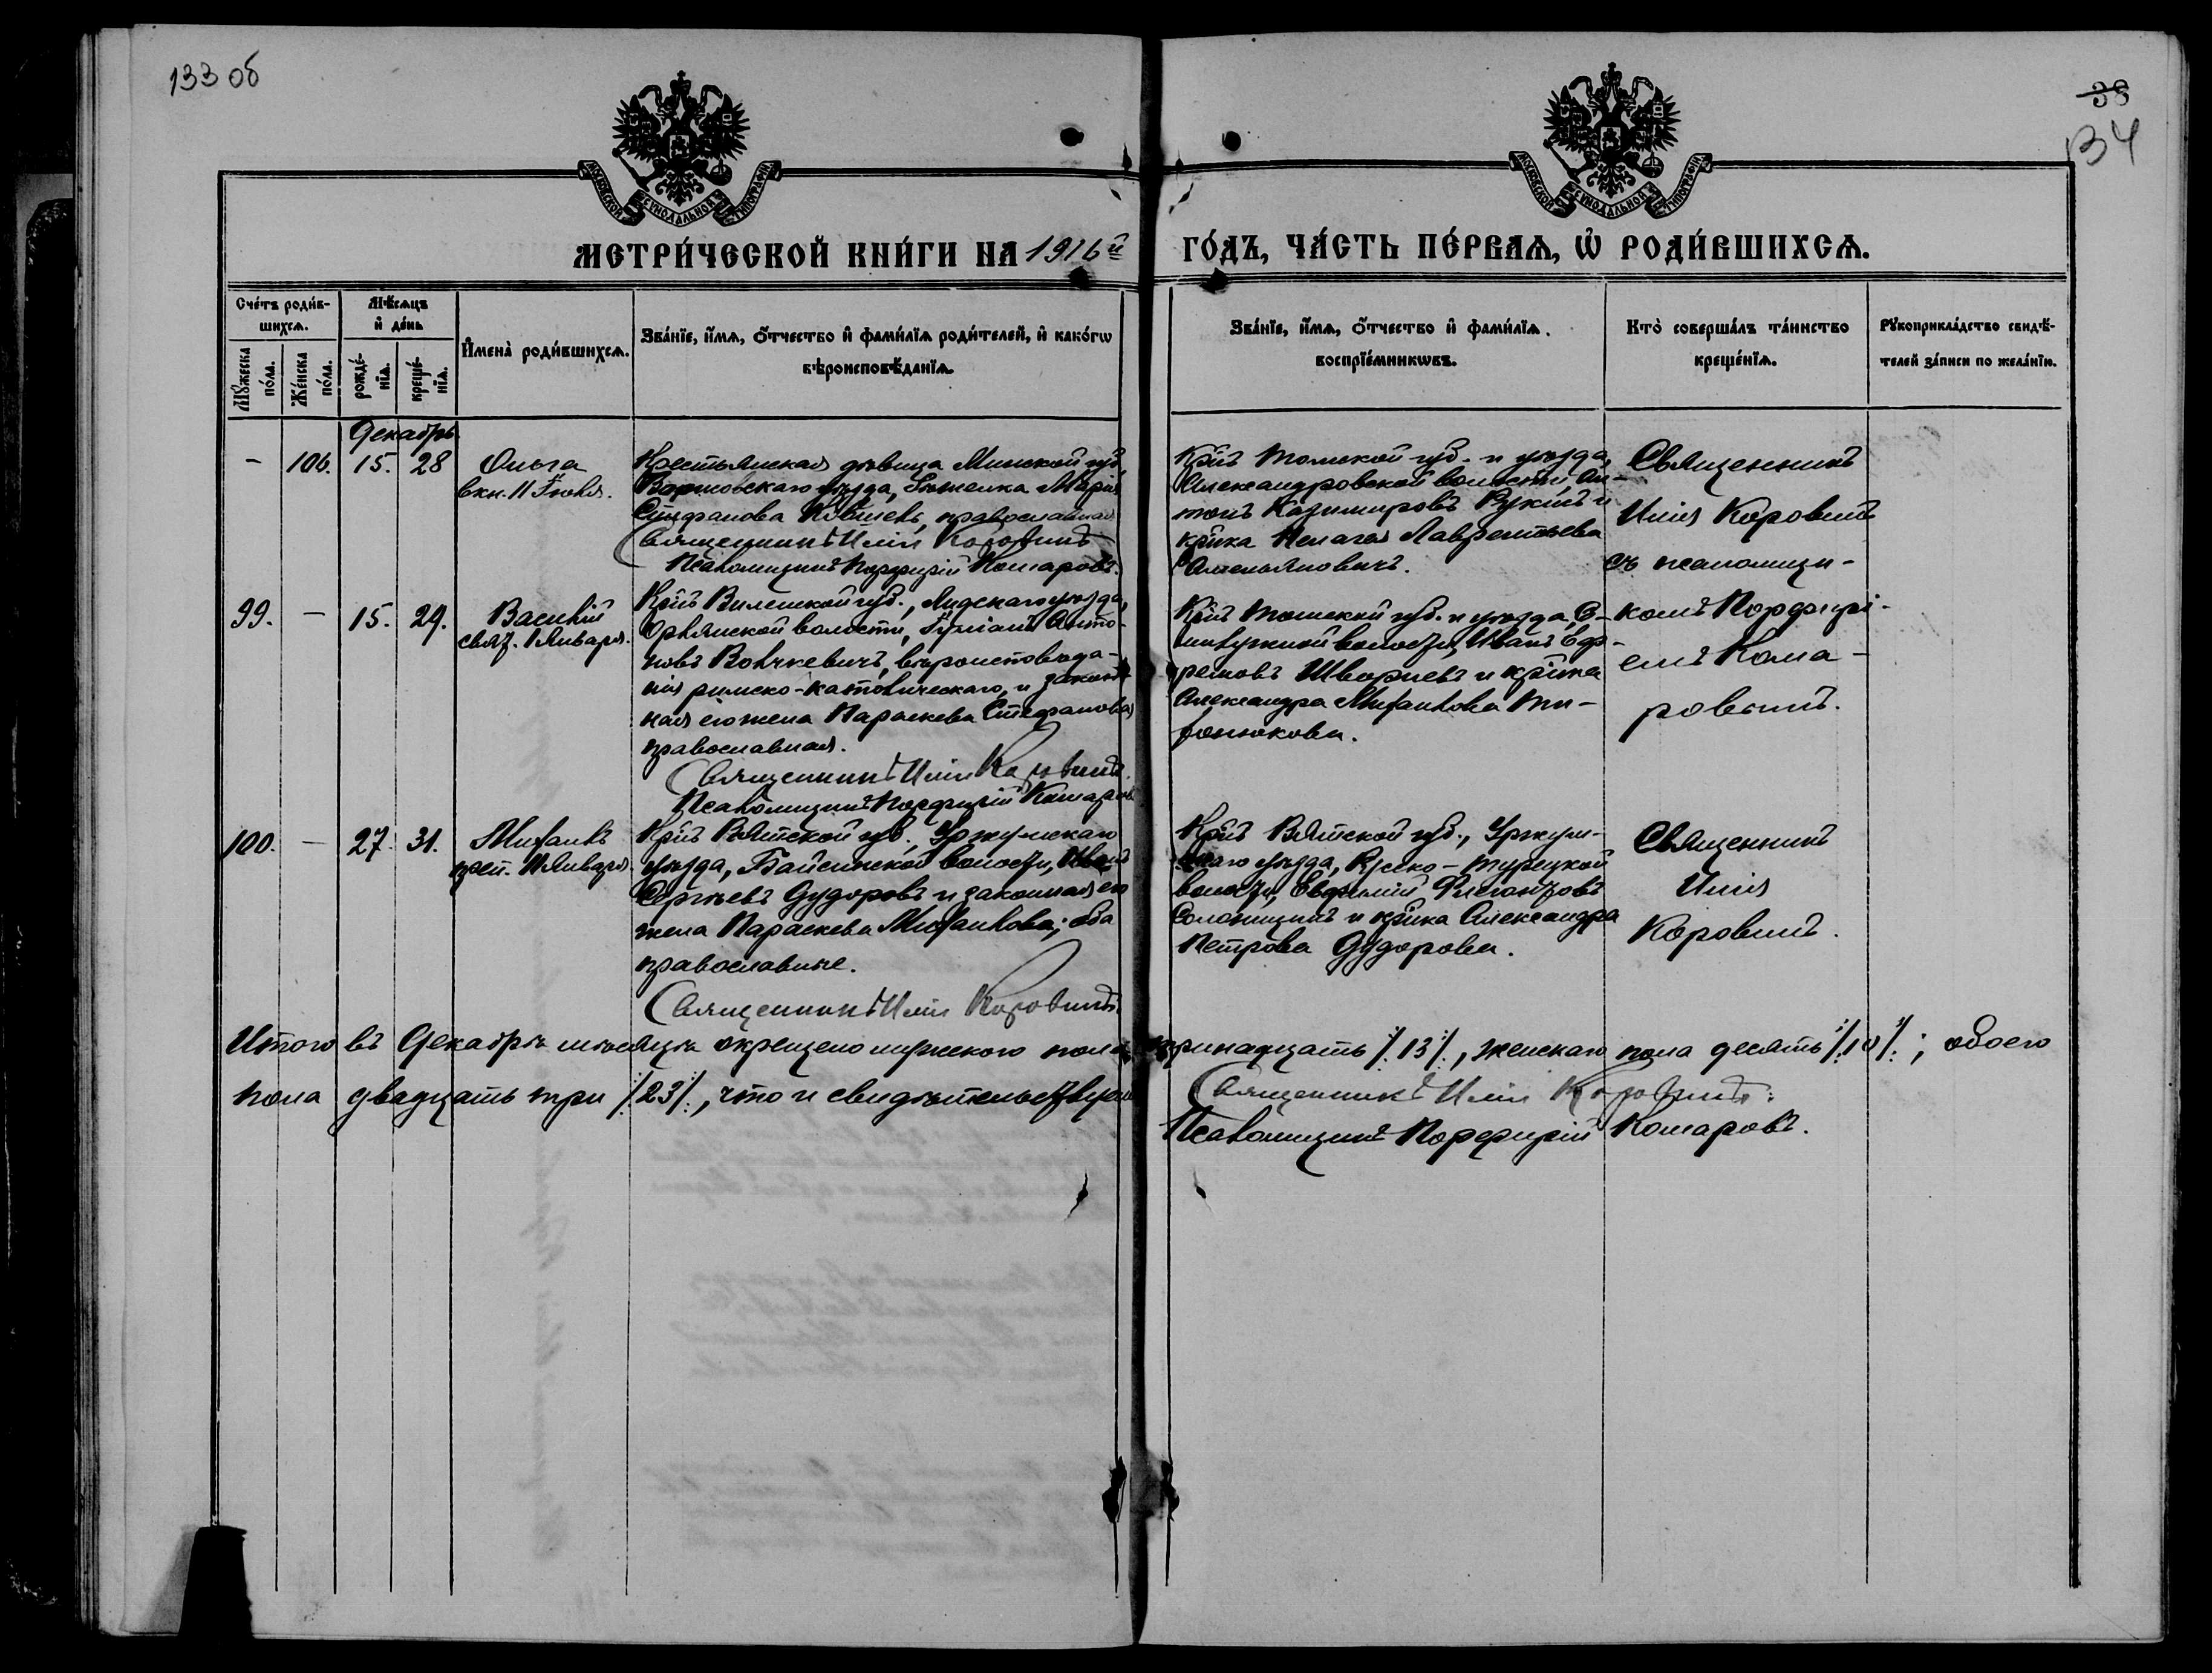 133 об
38
134
МОСКОВСКОЙ СѴНОДАЛЬНОЙ ТИПОГРАФІИ
МОСКОВСКОЙ СѴНОДАЛЬНОЙ ТИПОГРАФІИ
МЕТРИ́ЧЕСКОЙ КНИ́ГИ НА 1916й
ГО́ДЪ, ЧА́СТЬ ПЕ́РВАѦ, Ѡ҆ РОДИ́ВШИХСѦ.
Сче́тъ роди́в-
шихсѧ.
Мꙋ́жеска по́ла.
Же́нска по́ла.
Мѣ́сѧцъ
и҆ де́нь
рожде́-
нїѧ.
креще́-
нїѧ.
И҆мена̀ роди́вшихсѧ.
Зва́нїе, и҆́мѧ, ѻ҆́тчество и҆ фами́лїѧ роди́телей, и҆ како́гѡ
вѣроисповѣ́данїѧ.
Зва́нїе, и҆́мѧ, ѻ҆́тчество и҆ фами́лїѧ
воспрїе́мникѡвъ.
Кто̀ соверша́лъ та́инство
креще́нїѧ.
Рꙋкоприкла́дство свидѣ́-
телей за́писи по жела́нїю.
Декабрь
– 106. 15. 28
Ольга
вкн. 11 Іюля.
Крестьянская дѣвица Минской губ,
Борисовскаго уѣзда, Марія
Стефанова православная
Священникъ Илія Коровинъ
Псаломщикъ Порфирій Комаровъ.
Крнъ Томской губ. и уѣзда,
Александровской волости, Ан-
тонъ Казимировъ и
крнка Пелагея Лаврентьева
Омельяновичъ.
Священникъ
Илія Коровинъ
съ псаломщи-
комъ Порфирі-
емъ Кома-
ровымъ.
99. – 15. 29.
Василій
свят. 1 Января.
Крнъ Виленской губ., Лидскаго уѣзда,
Орлянской волости, Антo-
новъ вѣроисповѣда-
нія римско-католическаго, и закон-
ная его жена Параскева Стефанова
православная.
Священникъ Илія Коровинъ.
Псаломщикъ Порфирій Комаровъ
Крнъ Томской губ. и уѣзда,
волости, Иванъ Еф-
ремовъ и крнка
Александра Михайлова
100. – 27. 31.
Михаилъ
преп. 11 Января.
Крнъ Вятской губ., Уржумскаго
уѣзда, Байсинской волости, Иванъ
Сергѣевъ Дудоровъ и законная его
жена Параскева Михайлова; оба
православные.
Священникъ Илія Коровинъ
Крнъ Вятской губ., Уржум-
скаго уѣзда, Русско-Турецкой
волости, Евфимій
и крнка Александра
Петрова Дудорова.
Священникъ
Илія
Коровинъ.
Итого въ Декабрѣ мѣсяцѣ окрещено мужского пола тринадцать /.13/., женскаго пола десять /.10/.; обоего
пола двадцать три /.23/., что и свидѣтельствуемъ
Священникъ Илія Коровинъ.
Псаломщикъ Порфирій Комаровъ.